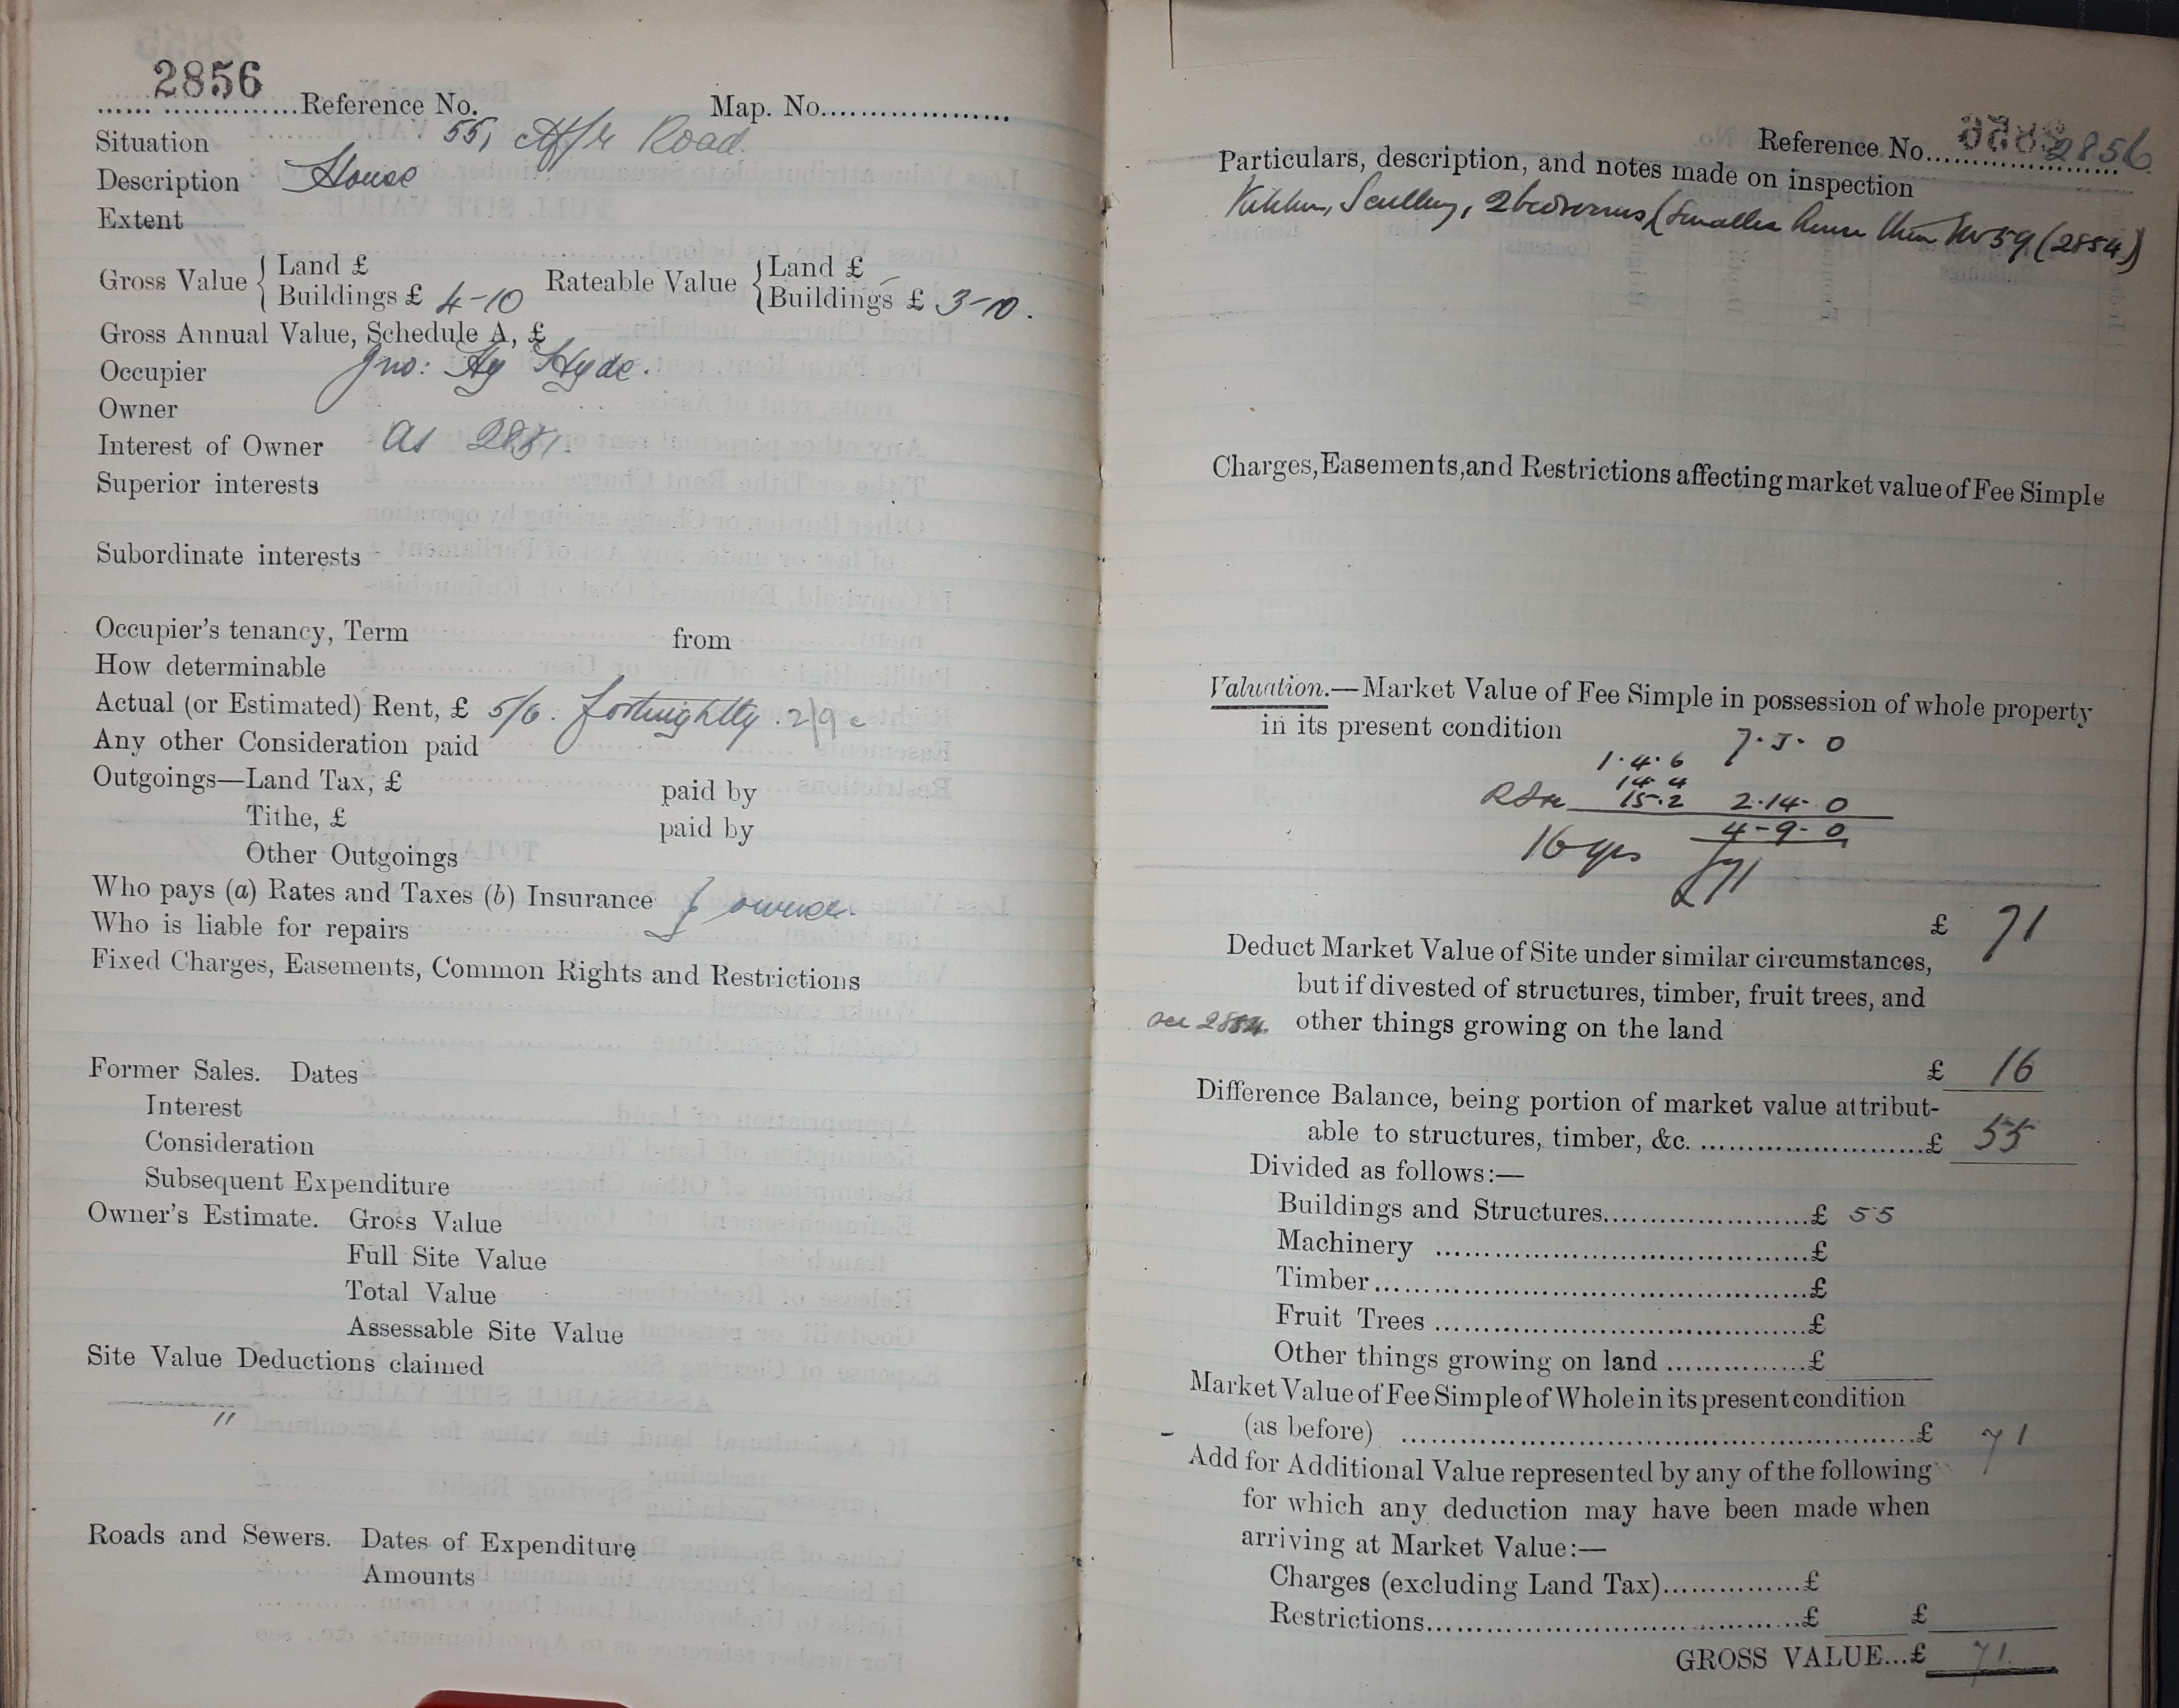 2856
Reference No. Map. No.
Situation 55, Road.
Description House
Extent
Gross Value { Land £ Rateable Value { Land £ -
Buildings £ 4-10 Buildings £ 3-10.
Gross Annual Value, Schedule A, £
Occupier Jno: Hy Hyde.
Owner
Interest of Owner As
Superior interests
Subordinate interests
Occupier's tenancy, Term from
How determinable
Actual (or Estimated) Rent, £ 5/6. fortnightly. 2/9
Any other Consideration paid
Outgoings—Land Tax, £ paid by
Tithe, £ paid by
Other Outgoings
Who pays (a) Rates and Taxes (b) Insurance } owner.
Who is liable for repairs
Fixed Charges, Easements, Common Rights and Restrictions
Former Sales. Dates
Interest
Consideration
Subsequent Expenditure
Owner's Estimate. Gross Value
Full Site Value
Total Value
Assessable Site Value
Site Value Deductions claimed
"
Roads and Sewers. Dates of Expenditure
Amounts
Reference No. 2856
Particulars, description, and notes made on inspection
Kitchen, Scullery, 2 bedrooms, (Smaller house than No 59 (2854)
Charges, Easements, and Restrictions affecting market value of Fee Simple
Valuation.—Market Value of Fee Simple in possession of whole property
in its present condition
7.3.0
1.4.6
14.4
15.2 2.14.0
4-9-0
16 yrs £71
£ 71
Deduct Market Value of Site under similar circumstances,
but if divested of structures, timber, fruit trees, and
see 2854. other things growing on the land
£ 16
Difference Balance, being portion of market value attribut-
able to structures, timber, &c. £ 55
Divided as follows:—
Buildings and Structures £ 55
Machinery £
Timber £
Fruit Trees £
Other things growing on land £
Market Value of Fee Simple of Whole in its present condition
(as before) £ 71
Add for Additional Value represented by any of the following
for which any deduction may have been made when
arriving at Market Value:—
Charges (excluding Land Tax) £
Restrictions £ £
GROSS VALUE...£ 71